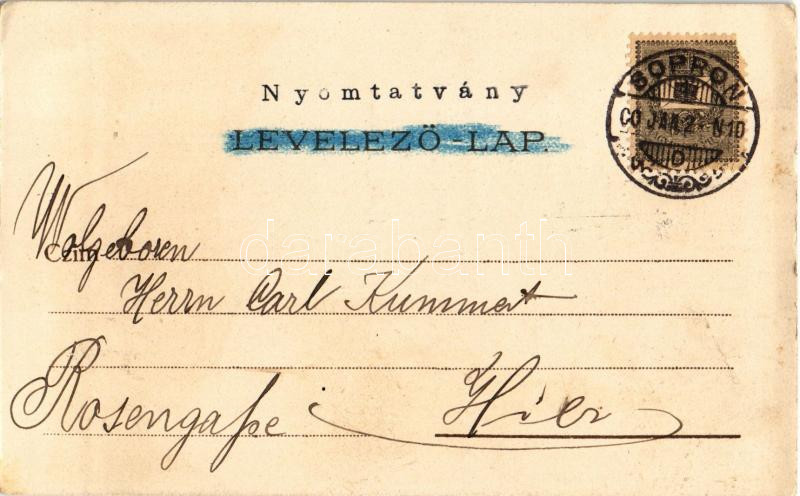 Nyomtatvány
LEVELEZŐ-LAP.
SOPRON
00 JAN. 2 N10
D
Czím
Wolgeboren
Herrn Carl Kummert
Rosengaße Hier
darabanth